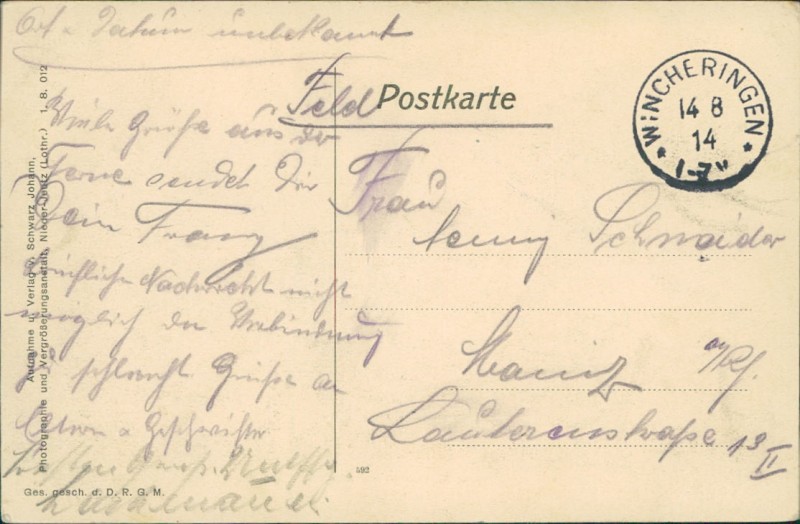 Ort u. Datum unbekannt
Feld Postkarte
WINCHERINGEN
14 8
14
Viele Grüße aus der
Ferne sendet Dir
Dein Franz
Nachricht nicht
möglich da Verbindung
schlecht Grüße an
Eltern u Geschwister
Frau
Jenny Schneider
Mainz a/Rh.
Laulerenstraße 13 II
Aufnahme u. Verlag v. Schwarz Johann,
Photographie und Vergrößerungsanstalt, Nieder-Jeutz (Lothr.) 1. 8. 012
592
Ges. gesch. d. D. R. G. M.